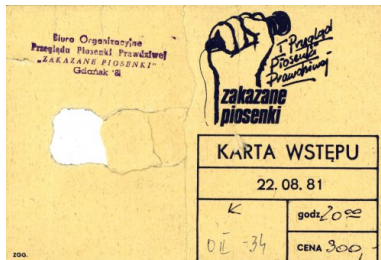 Biuro Organizacyjne
Przeglądu Piosenki Prawdziwej
„ZAKAZANE PIOSENKI"
Gdańsk '81
I Przegląd
Piosenki
Prawdziwej
zakazane
piosenki
KARTA WSTĘPU
22.08.81
K
godz. 20⁰⁰
0 II -34
CENA 300,-
ZGO.